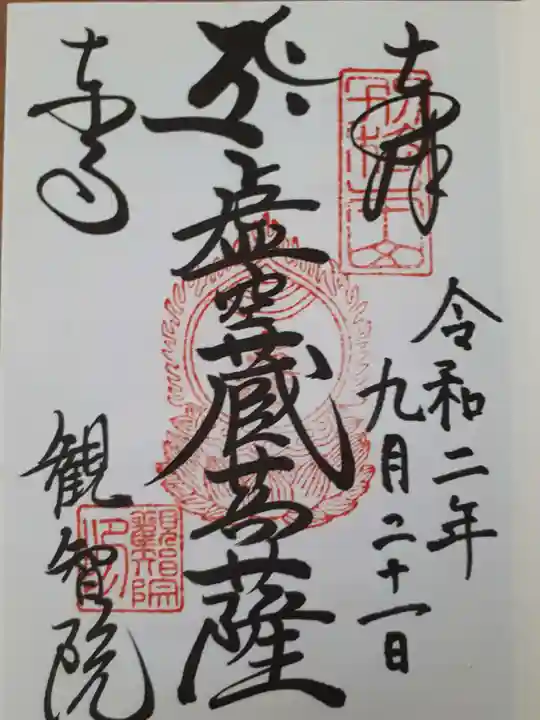 奉拝
令和二年
九月二十一日
虚空蔵菩薩
東寺
観智院